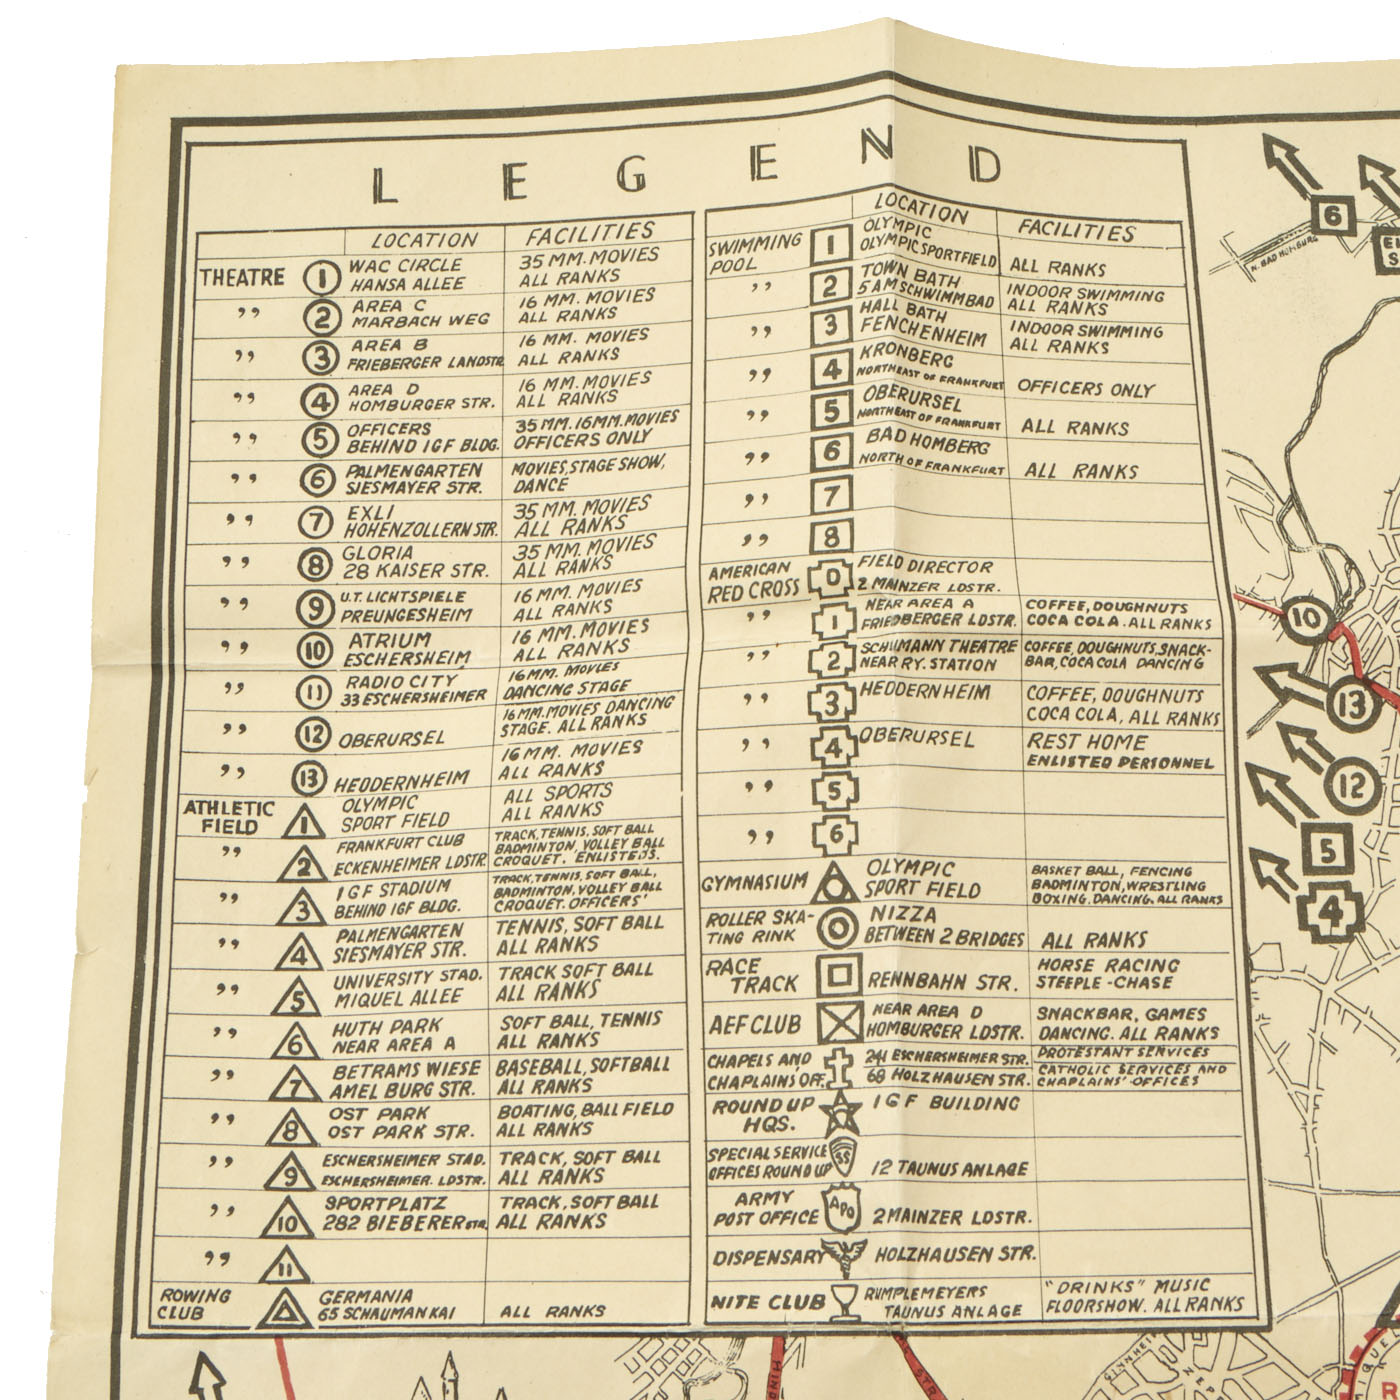 LEGEND
LOCATION FACILITIES
THEATRE 1 WAC CIRCLE 35 MM. MOVIES
HANSA ALLEE ALL RANKS
" 2 AREA C 16 MM. MOVIES
MARBACH WEG ALL RANKS
" 3 AREA B 16 MM. MOVIES
FRIEBERGER LANDSTR ALL RANKS
" 4 AREA D 16 MM. MOVIES
HOMBURGER STR. ALL RANKS
" 5 OFFICERS 35 MM. 16MM. MOVIES
BEHIND IGF BLDG. OFFICERS ONLY
" 6 PALMENGARTEN MOVIES, STAGE SHOW,
SIESMAYER STR. DANCE
" 7 EXLI 35 MM. MOVIES
HOHENZOLLERN STR. ALL RANKS
" 8 GLORIA 35 MM. MOVIES
28 KAISER STR. ALL RANKS
" 9 U.T. LICHTSPIELE 16 MM. MOVIES
PREUNGESHEIM ALL RANKS
" 10 ATRIUM 16 MM. MOVIES
ESCHERSHEIM ALL RANKS
" 11 RADIO CITY 16 MM. MOVIES
33 ESCHERSHEIMER DANCING STAGE
" 12 OBERURSEL 16 MM. MOVIES DANCING
STAGE. ALL RANKS
" 13 HEDDERNHEIM 16 MM. MOVIES
ALL RANKS
ATHLETIC FIELD 1 OLYMPIC ALL SPORTS
SPORT FIELD ALL RANKS
" 2 FRANKFURT CLUB TRACK, TENNIS, SOFT BALL
ECKENHEIMER LDSTR BADMINTON, VOLLEY BALL
CROQUET. ENLISTEDS.
" 3 IGF STADIUM TRACK, TENNIS, SOFT BALL,
BEHIND IGF BLDG. BADMINTON, VOLLEY BALL
CROQUET. OFFICERS'
" 4 PALMENGARTEN TENNIS, SOFT BALL
SIESMAYER STR. ALL RANKS
" 5 UNIVERSITY STAD. TRACK SOFT BALL
MIQUEL ALLEE ALL RANKS
" 6 HUTH PARK SOFT BALL, TENNIS
NEAR AREA A ALL RANKS
" 7 BETRAMS WIESE BASEBALL, SOFTBALL
AMEL BURG STR. ALL RANKS
" 8 OST PARK BOATING, BALL FIELD
OST PARK STR. ALL RANKS
" 9 ESCHERSHEIMER STAD. TRACK, SOFT BALL
ESCHERSHEIMER. LDSTR. ALL RANKS
" 10 SPORTPLATZ TRACK, SOFT BALL
282 BIEBERER STR. ALL RANKS
" 11
ROWING CLUB GERMANIA
65 SCHAUMANKAI ALL RANKS
LOCATION FACILITIES
SWIMMING POOL 1 OLYMPIC
OLYMPIC SPORTFIELD ALL RANKS
" 2 TOWN BATH INDOOR SWIMMING
5 AM SCHWIMMBAD ALL RANKS
" 3 HALL BATH INDOOR SWIMMING
FENCHENHEIM ALL RANKS
" 4 KRONBERG
NORTHEAST OF FRANKFURT OFFICERS ONLY
" 5 OBERURSEL
NORTHEAST OF FRANKFURT ALL RANKS
" 6 BAD HOMBERG
NORTH OF FRANKFURT ALL RANKS
" 7
" 8
AMERICAN RED CROSS 0 FIELD DIRECTOR
2 MAINZER LDSTR.
" 1 NEAR AREA A COFFEE, DOUGHNUTS
FRIEDBERGER LDSTR. COCA COLA. ALL RANKS
" 2 SCHUMANN THEATRE COFFEE, DOUGHNUTS, SNACK-
NEAR RY. STATION BAR, COCA COLA DANCING
" 3 HEDDERNHEIM COFFEE, DOUGHNUTS
COCA COLA, ALL RANKS
" 4 OBERURSEL REST HOME
ENLISTED PERSONNEL
" 5
" 6
GYMNASIUM OLYMPIC BASKET BALL, FENCING
SPORT FIELD BADMINTON, WRESTLING
BOXING. DANCING. ALL RANKS
ROLLER SKA- NIZZA
TING RINK BETWEEN 2 BRIDGES ALL RANKS
RACE HORSE RACING
TRACK RENNBAHN STR. STEEPLE-CHASE
AEF CLUB NEAR AREA D SNACKBAR, GAMES
HOMBURGER LDSTR. DANCING. ALL RANKS
CHAPELS AND 241 ESCHERSHEIMER STR. PROTESTANT SERVICES
CHAPLAINS' OFF. 68 HOLZHAUSEN STR. CATHOLIC SERVICES AND
CHAPLAINS' OFFICES
ROUND UP IGF BUILDING
HQS.
SPECIAL SERVICE SS
OFFICES ROUND UP 12 TAUNUS ANLAGE
ARMY APO
POST OFFICE 2 MAINZER LDSTR.
DISPENSARY HOLZHAUSEN STR.
NITE CLUB RUMPLEMEYERS "DRINKS" MUSIC
TAUNUS ANLAGE FLOORSHOW. ALL RANKS
6
N. BAD HOMBURG
10
13
12
5
4